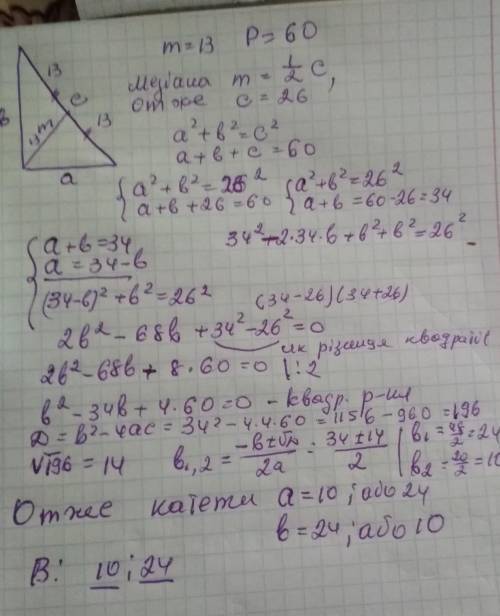 m = 13 P = 60
13
c
13
в
m
a
Медіана m = 1/2 c,
отже c = 26
a² + в² = c²
a + в + c = 60
{ a² + в² = 26² { a² + в² = 26²
a + в + 26 = 60 a + в = 60 - 26 = 34
{ a + в = 34 34² - 2·34·в + в² + в² = 26²
a = 34 - в
(34-в)² + в² = 26² (34-26)(34+26)
2в² - 68в + 34² - 26² = 0
як різниця квадратів
2в² - 68в + 8·60 = 0 |:2
в² - 34в + 4·60 = 0 - квадр. р-ня
D = в² - 4ac = 34² - 4·4·60 = 1156 - 960 = 196
√196 = 14 в₁,₂ = (-в±√D)/2a = (34±14)/2 | в₁ = 48/2 = 24
в₂ = 20/2 = 10
Отже катети a = 10; або 24
в = 24; або 10
В: 10; 24